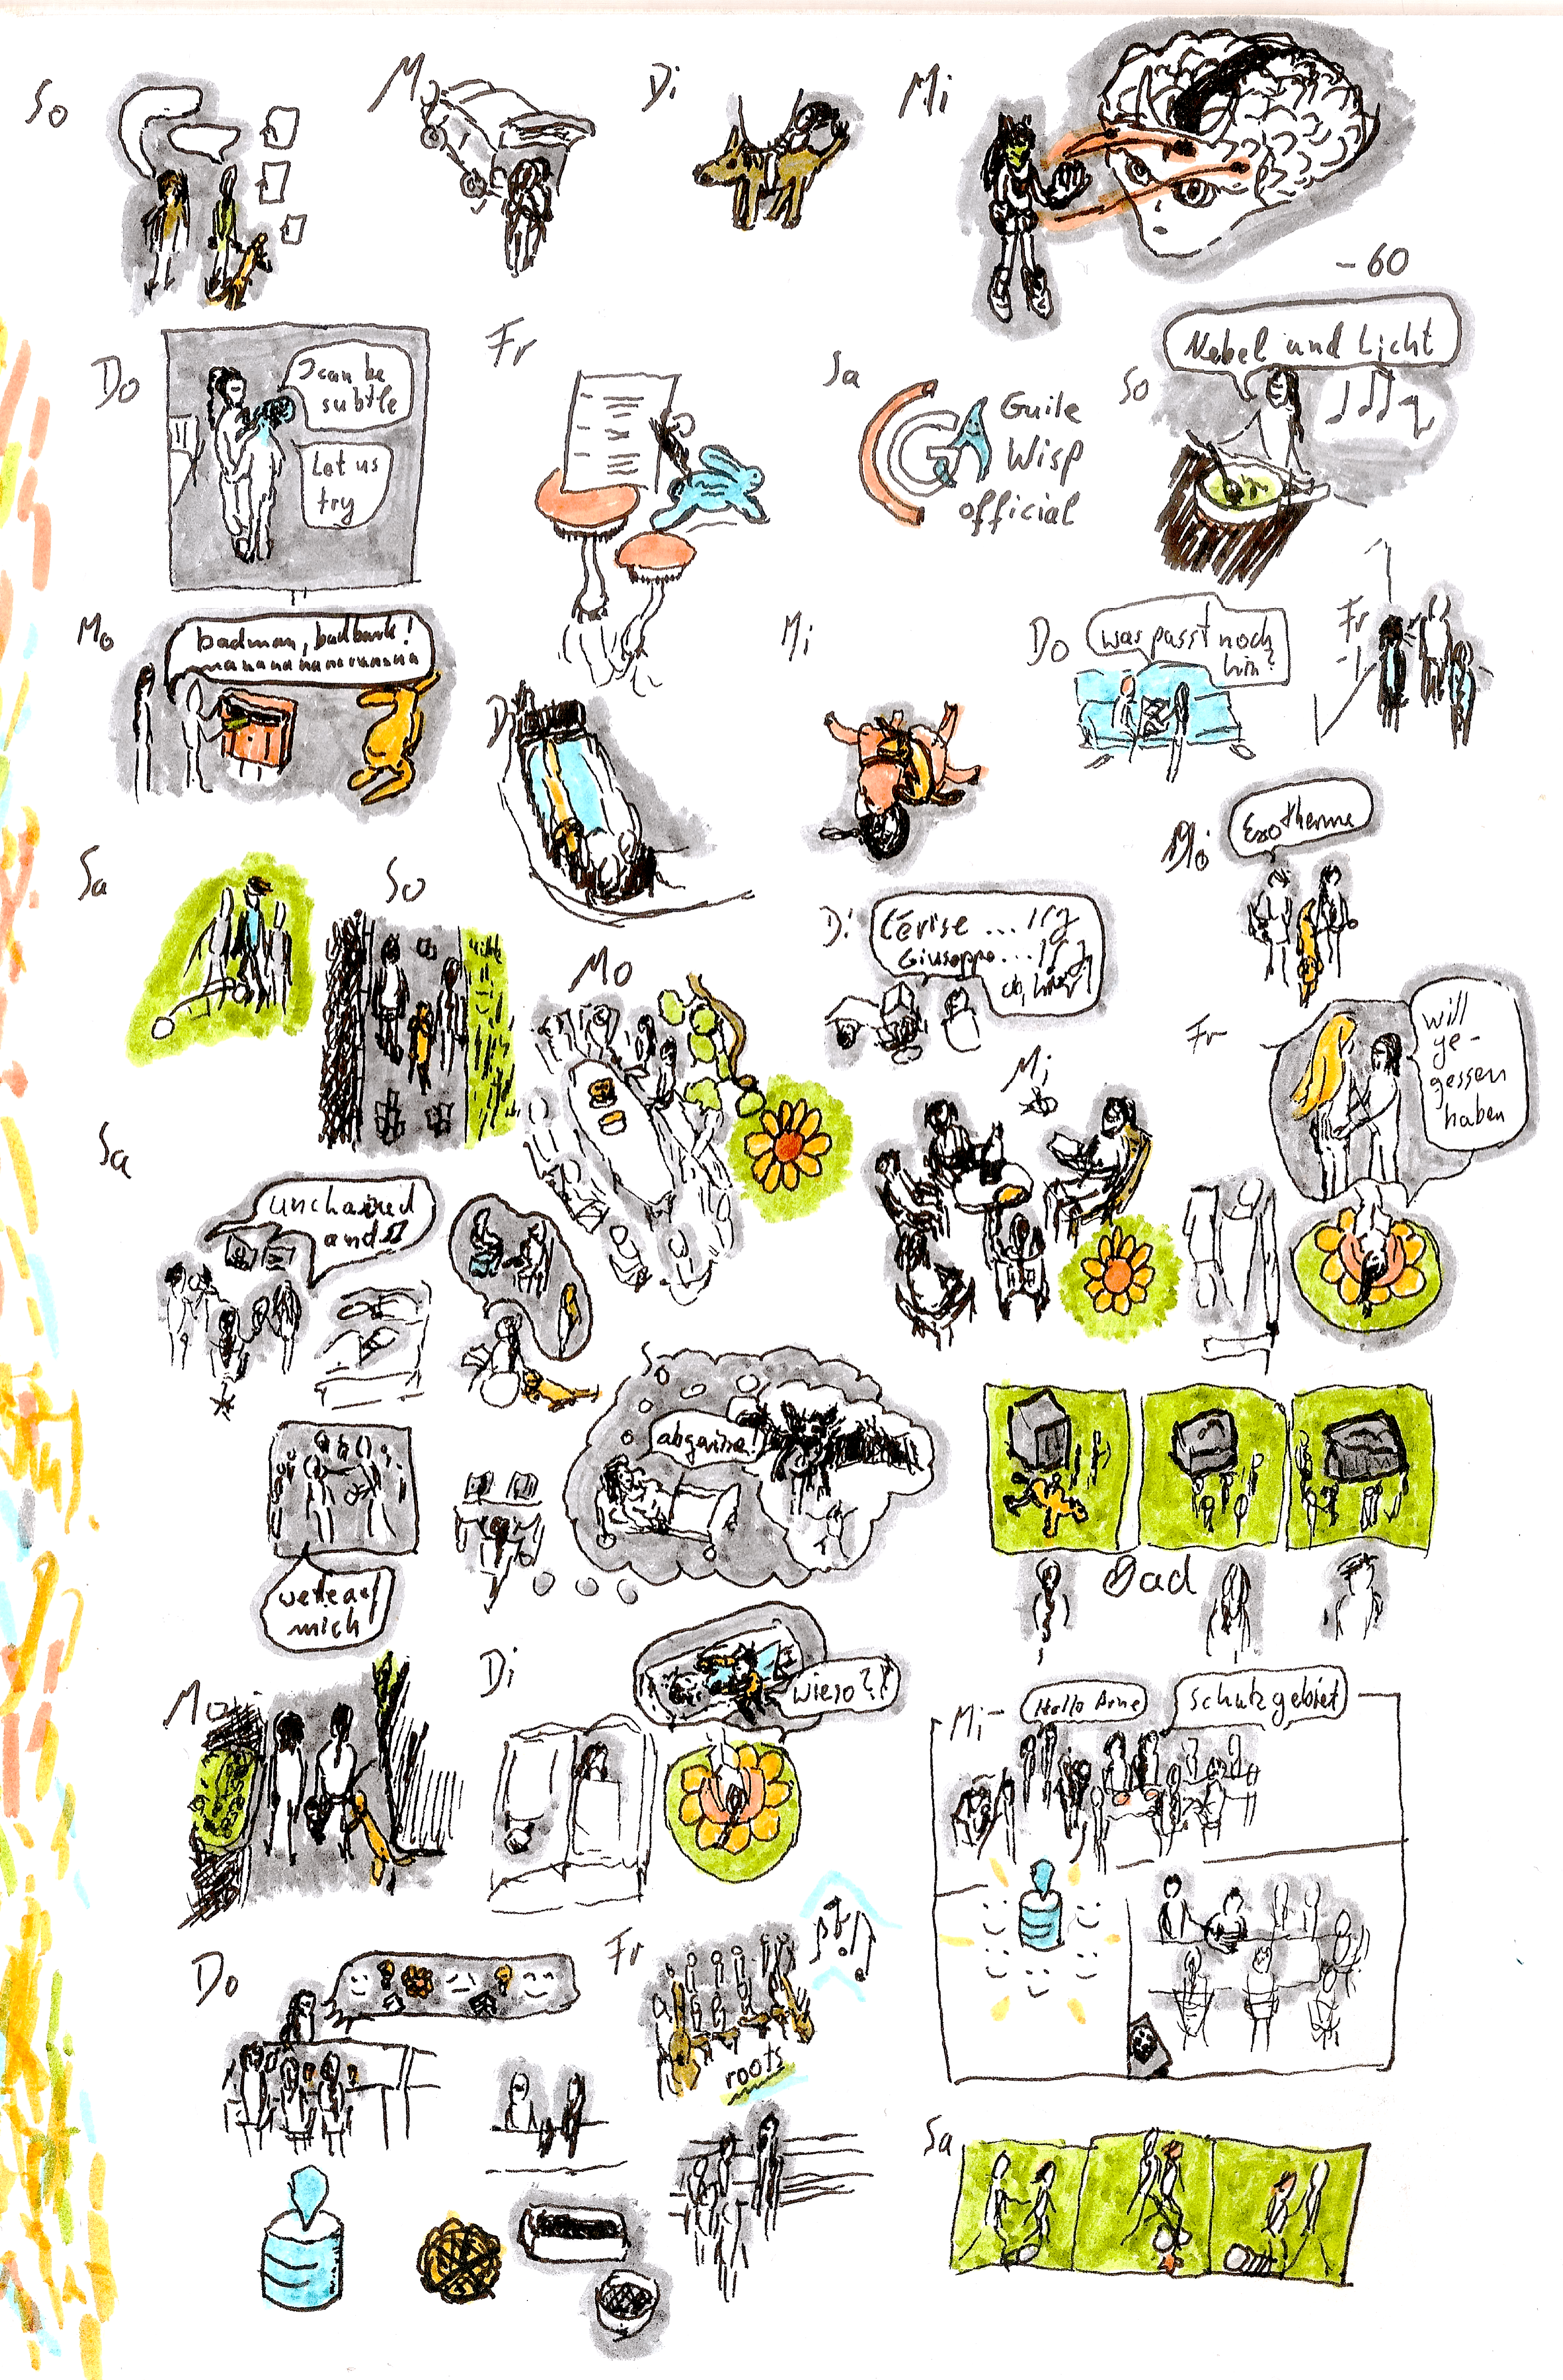 So
Mo
Di
Mi
-60
Do
I can be
subtle
Let us
try
Fr
Sa
Guile
Wisp
official
So
Nebel und Licht
Mo
badman, badbank!
nananananananana
Di
Mi
Do
was passt noch
hin?
Fr
Sa
So
Mo
Di
Cérise ... 1 g
Giuseppe ... 1 g
Mi
Do
Exotherme
Fr
will
ge-
gessen
haben
Sa
unchained
and
So
abgewiesen!
Bad
werte auf
mich
Mo
Di
wieso?!
Mi
Hallo Arne
Schutzgebiet
Do
Fr
roots
Sa